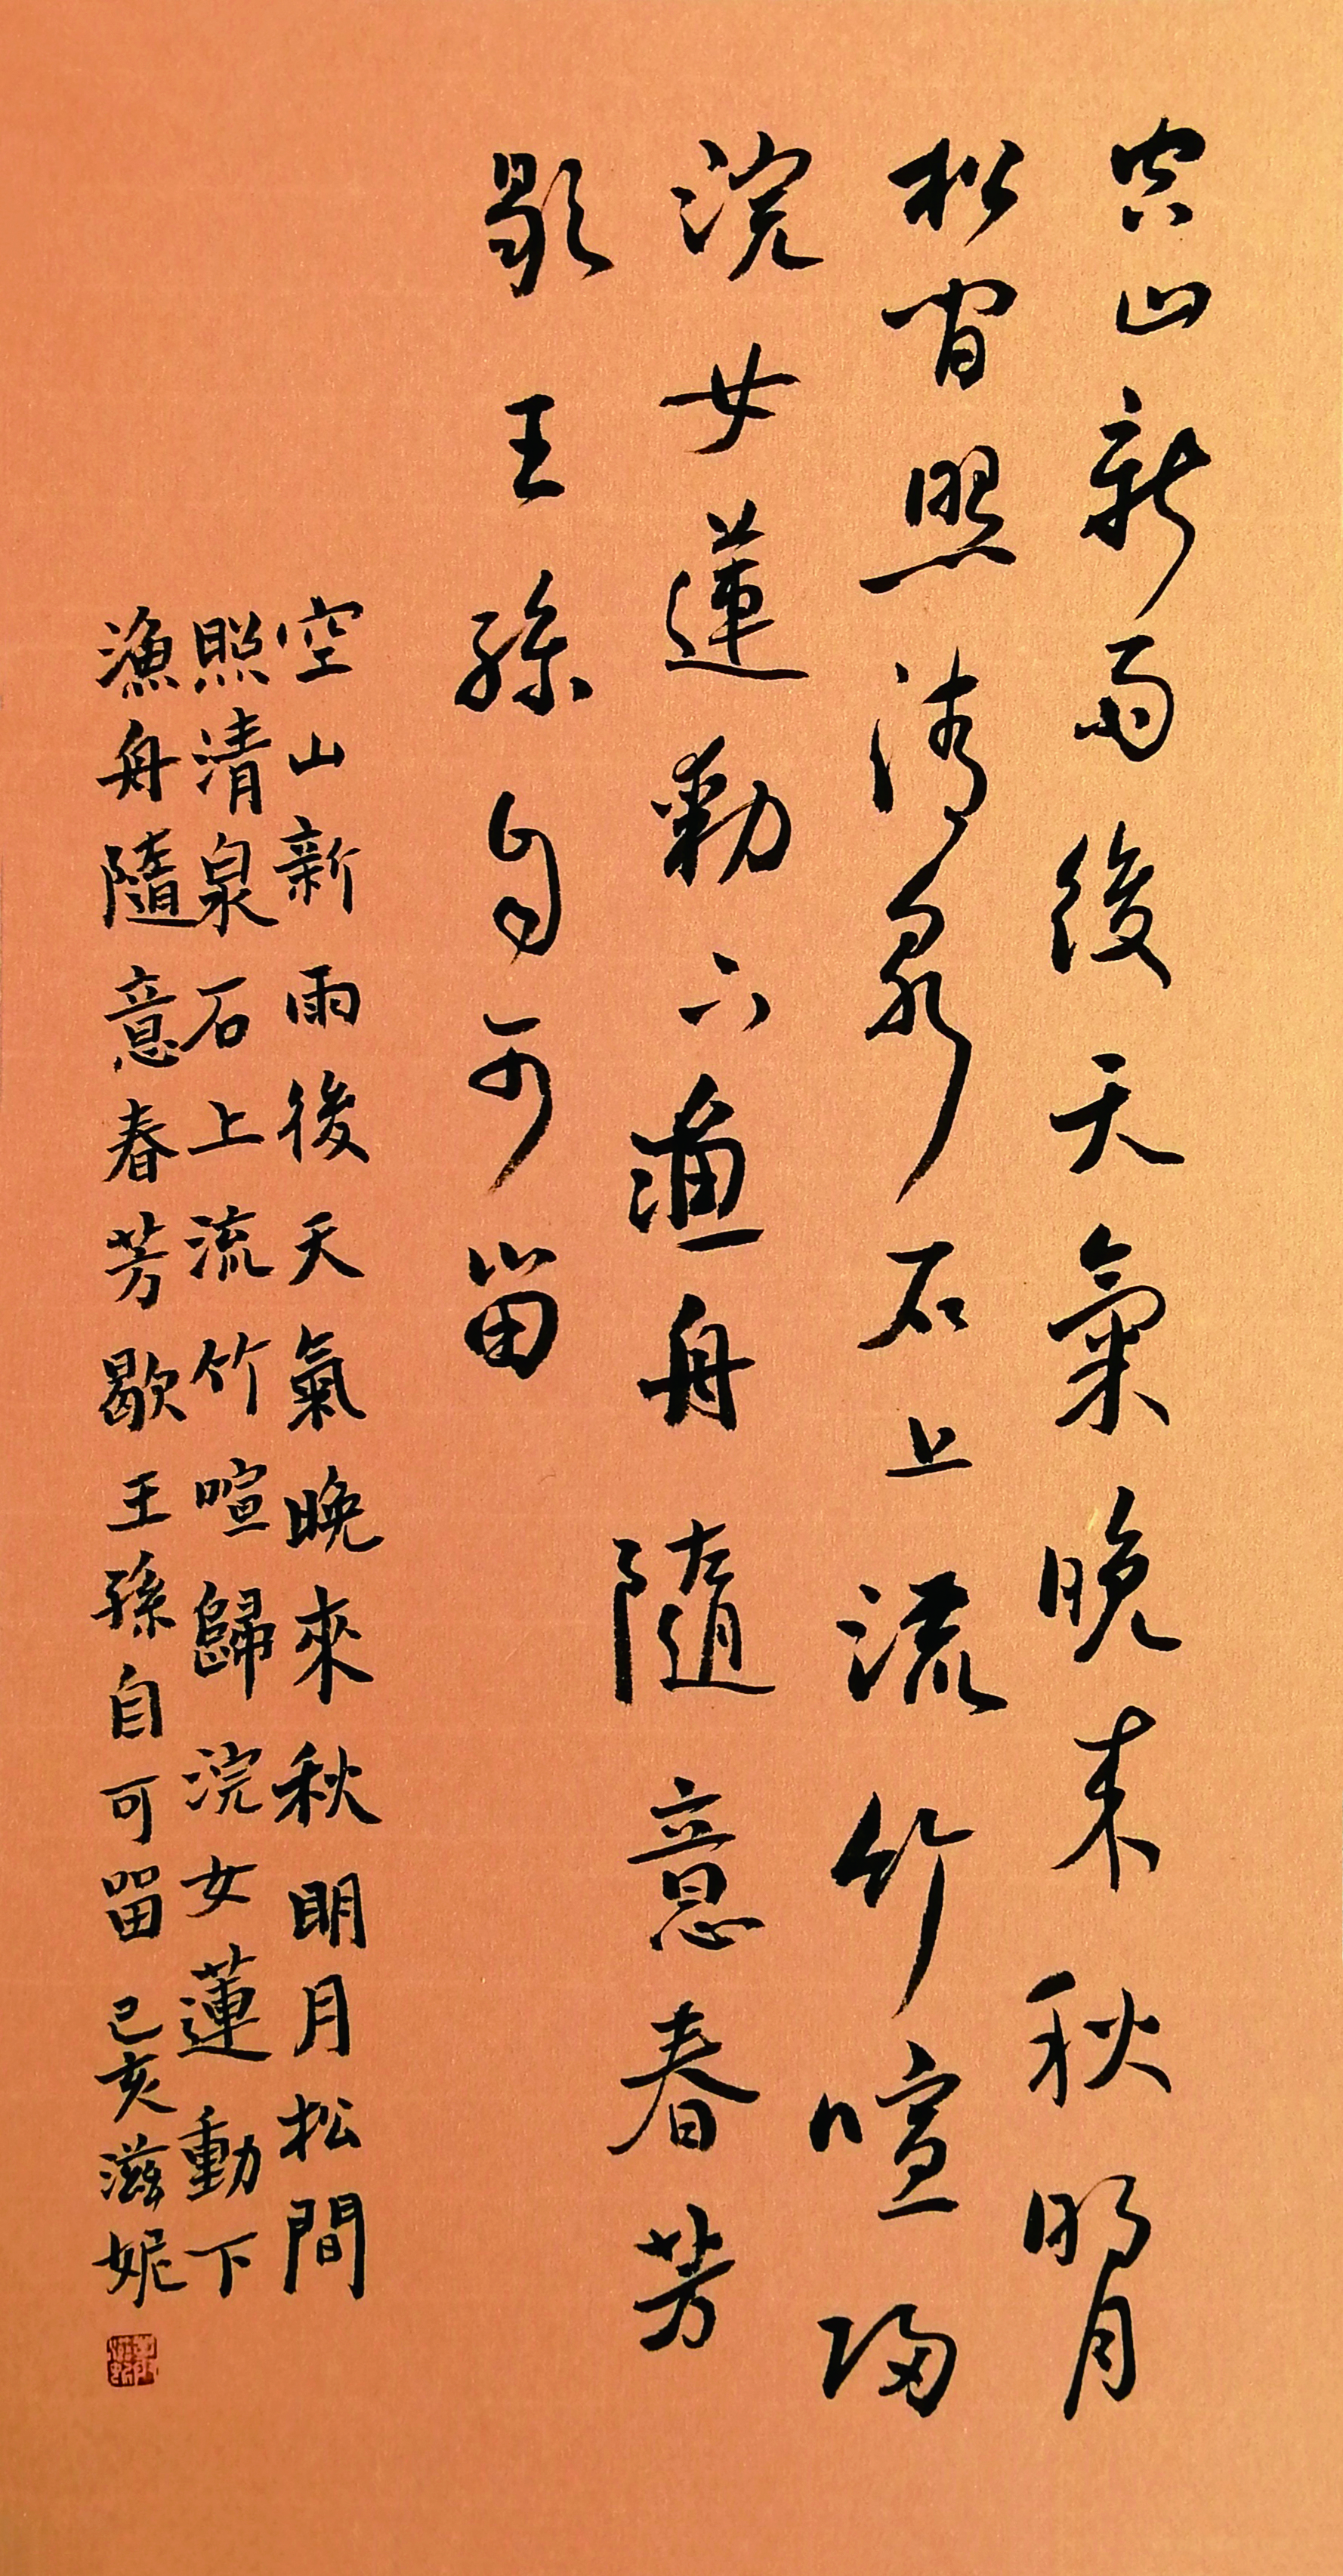 空山新雨後天氣晚来秋明月
松間照清泉石上流竹喧歸
浣女蓮動下漁舟隨意春芳
歇王孫自可留
空山新雨後天氣晚來秋明月松間
照清泉石上流竹喧歸浣女蓮動下
漁舟隨意春芳歇王孫自可留己亥滋妮